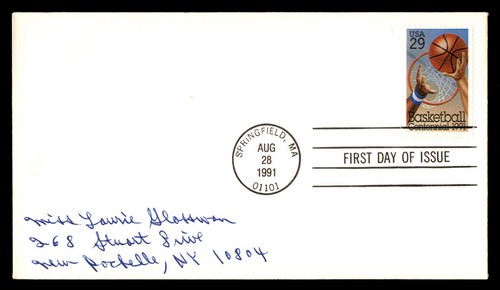 USA
29
Basketball
Centennial 1991
SPRINGFIELD, MA
AUG
28
1991
01101
FIRST DAY OF ISSUE
Miss Laurie Glassman
268 Stuart Drive
New Rochelle, NY 10804